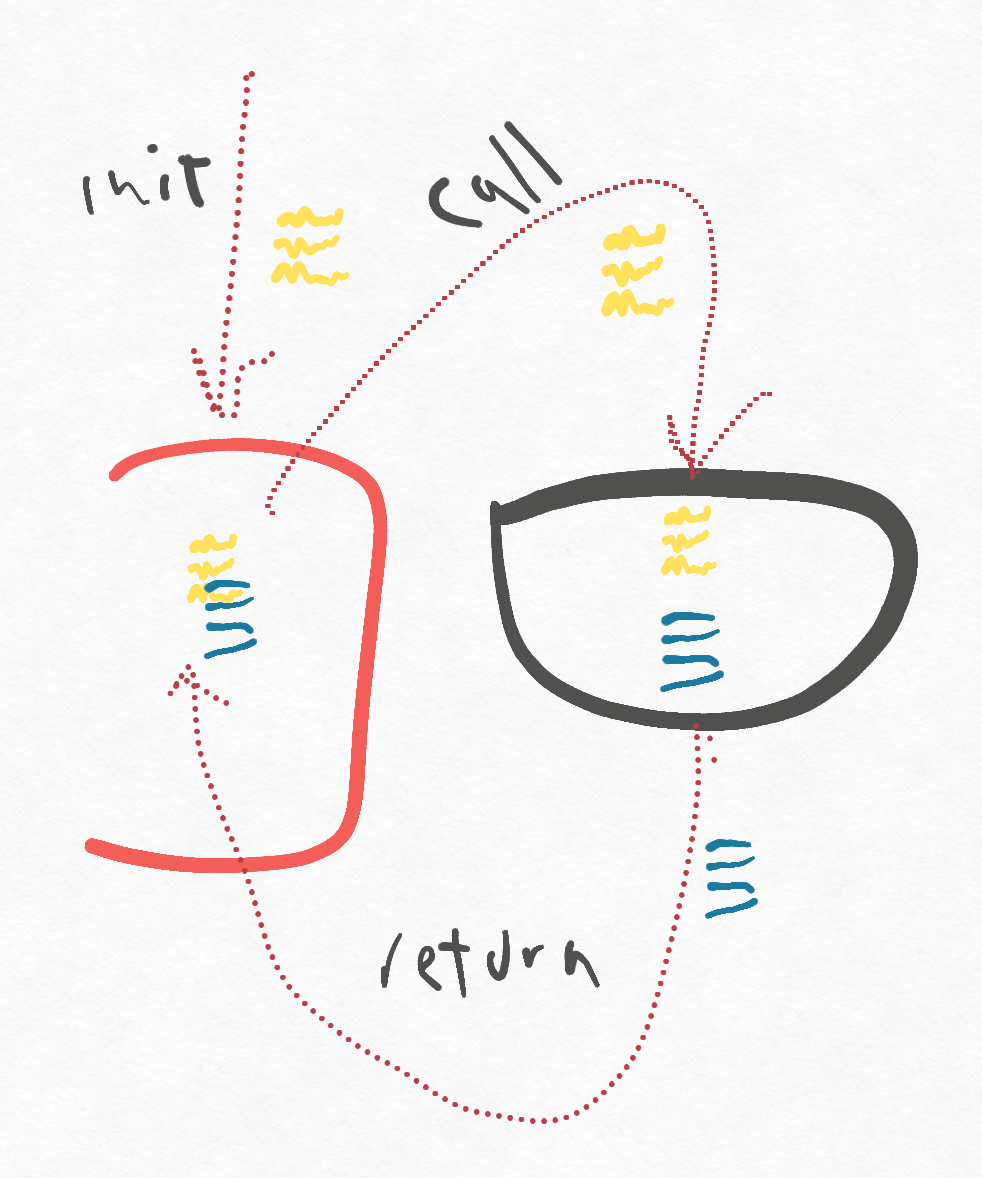 init
call
return